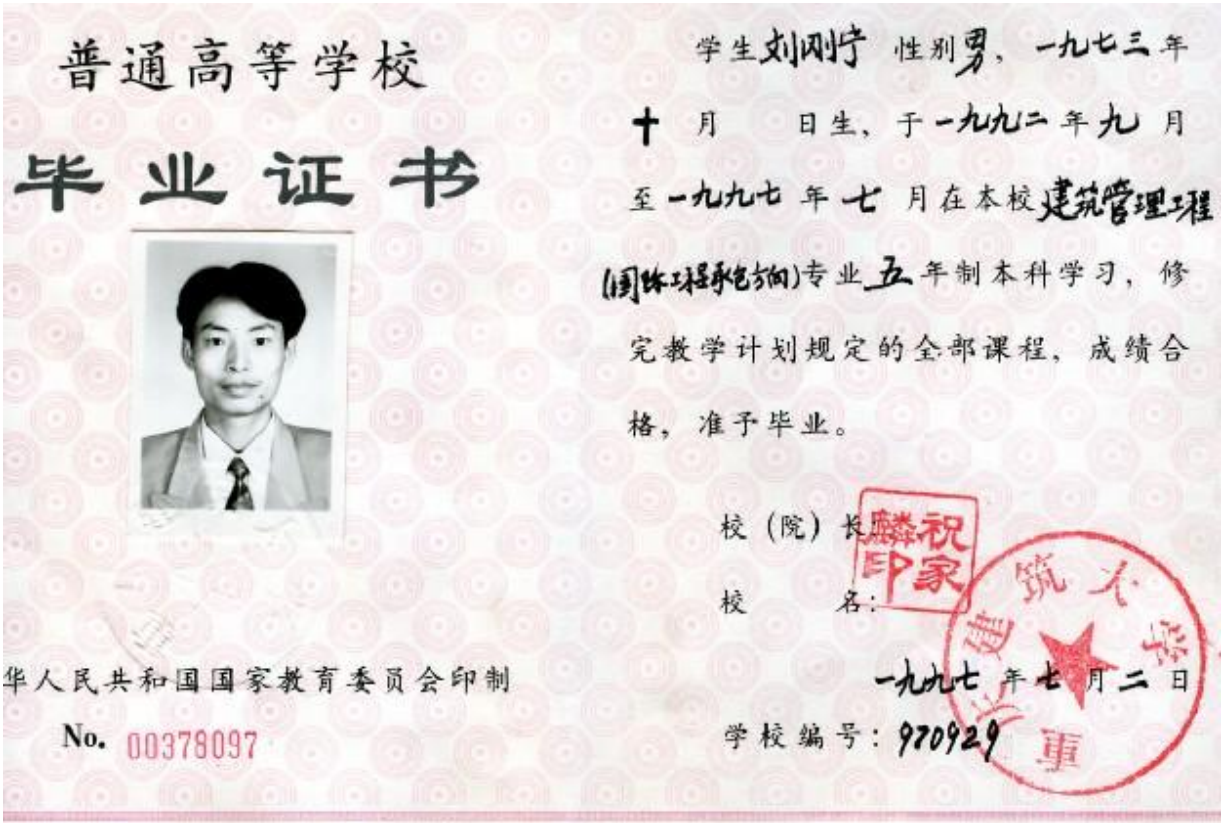 普通高等学校
毕业证书
华人民共和国国家教育委员会印制
No. 00378097
学生刘刚宁 性别男、一九七三年
十 月 日生、于一九九二年九月
至一九九七年七月在本校建筑管理工程
(国际工程承包方向)专业五年制本科学习，修
完教学计划规定的全部课程，成绩合
格，准予毕业。
校（院）长：
祝家麟印
校 名：
重庆建筑大学
一九九七年七月二日
学校编号：970929